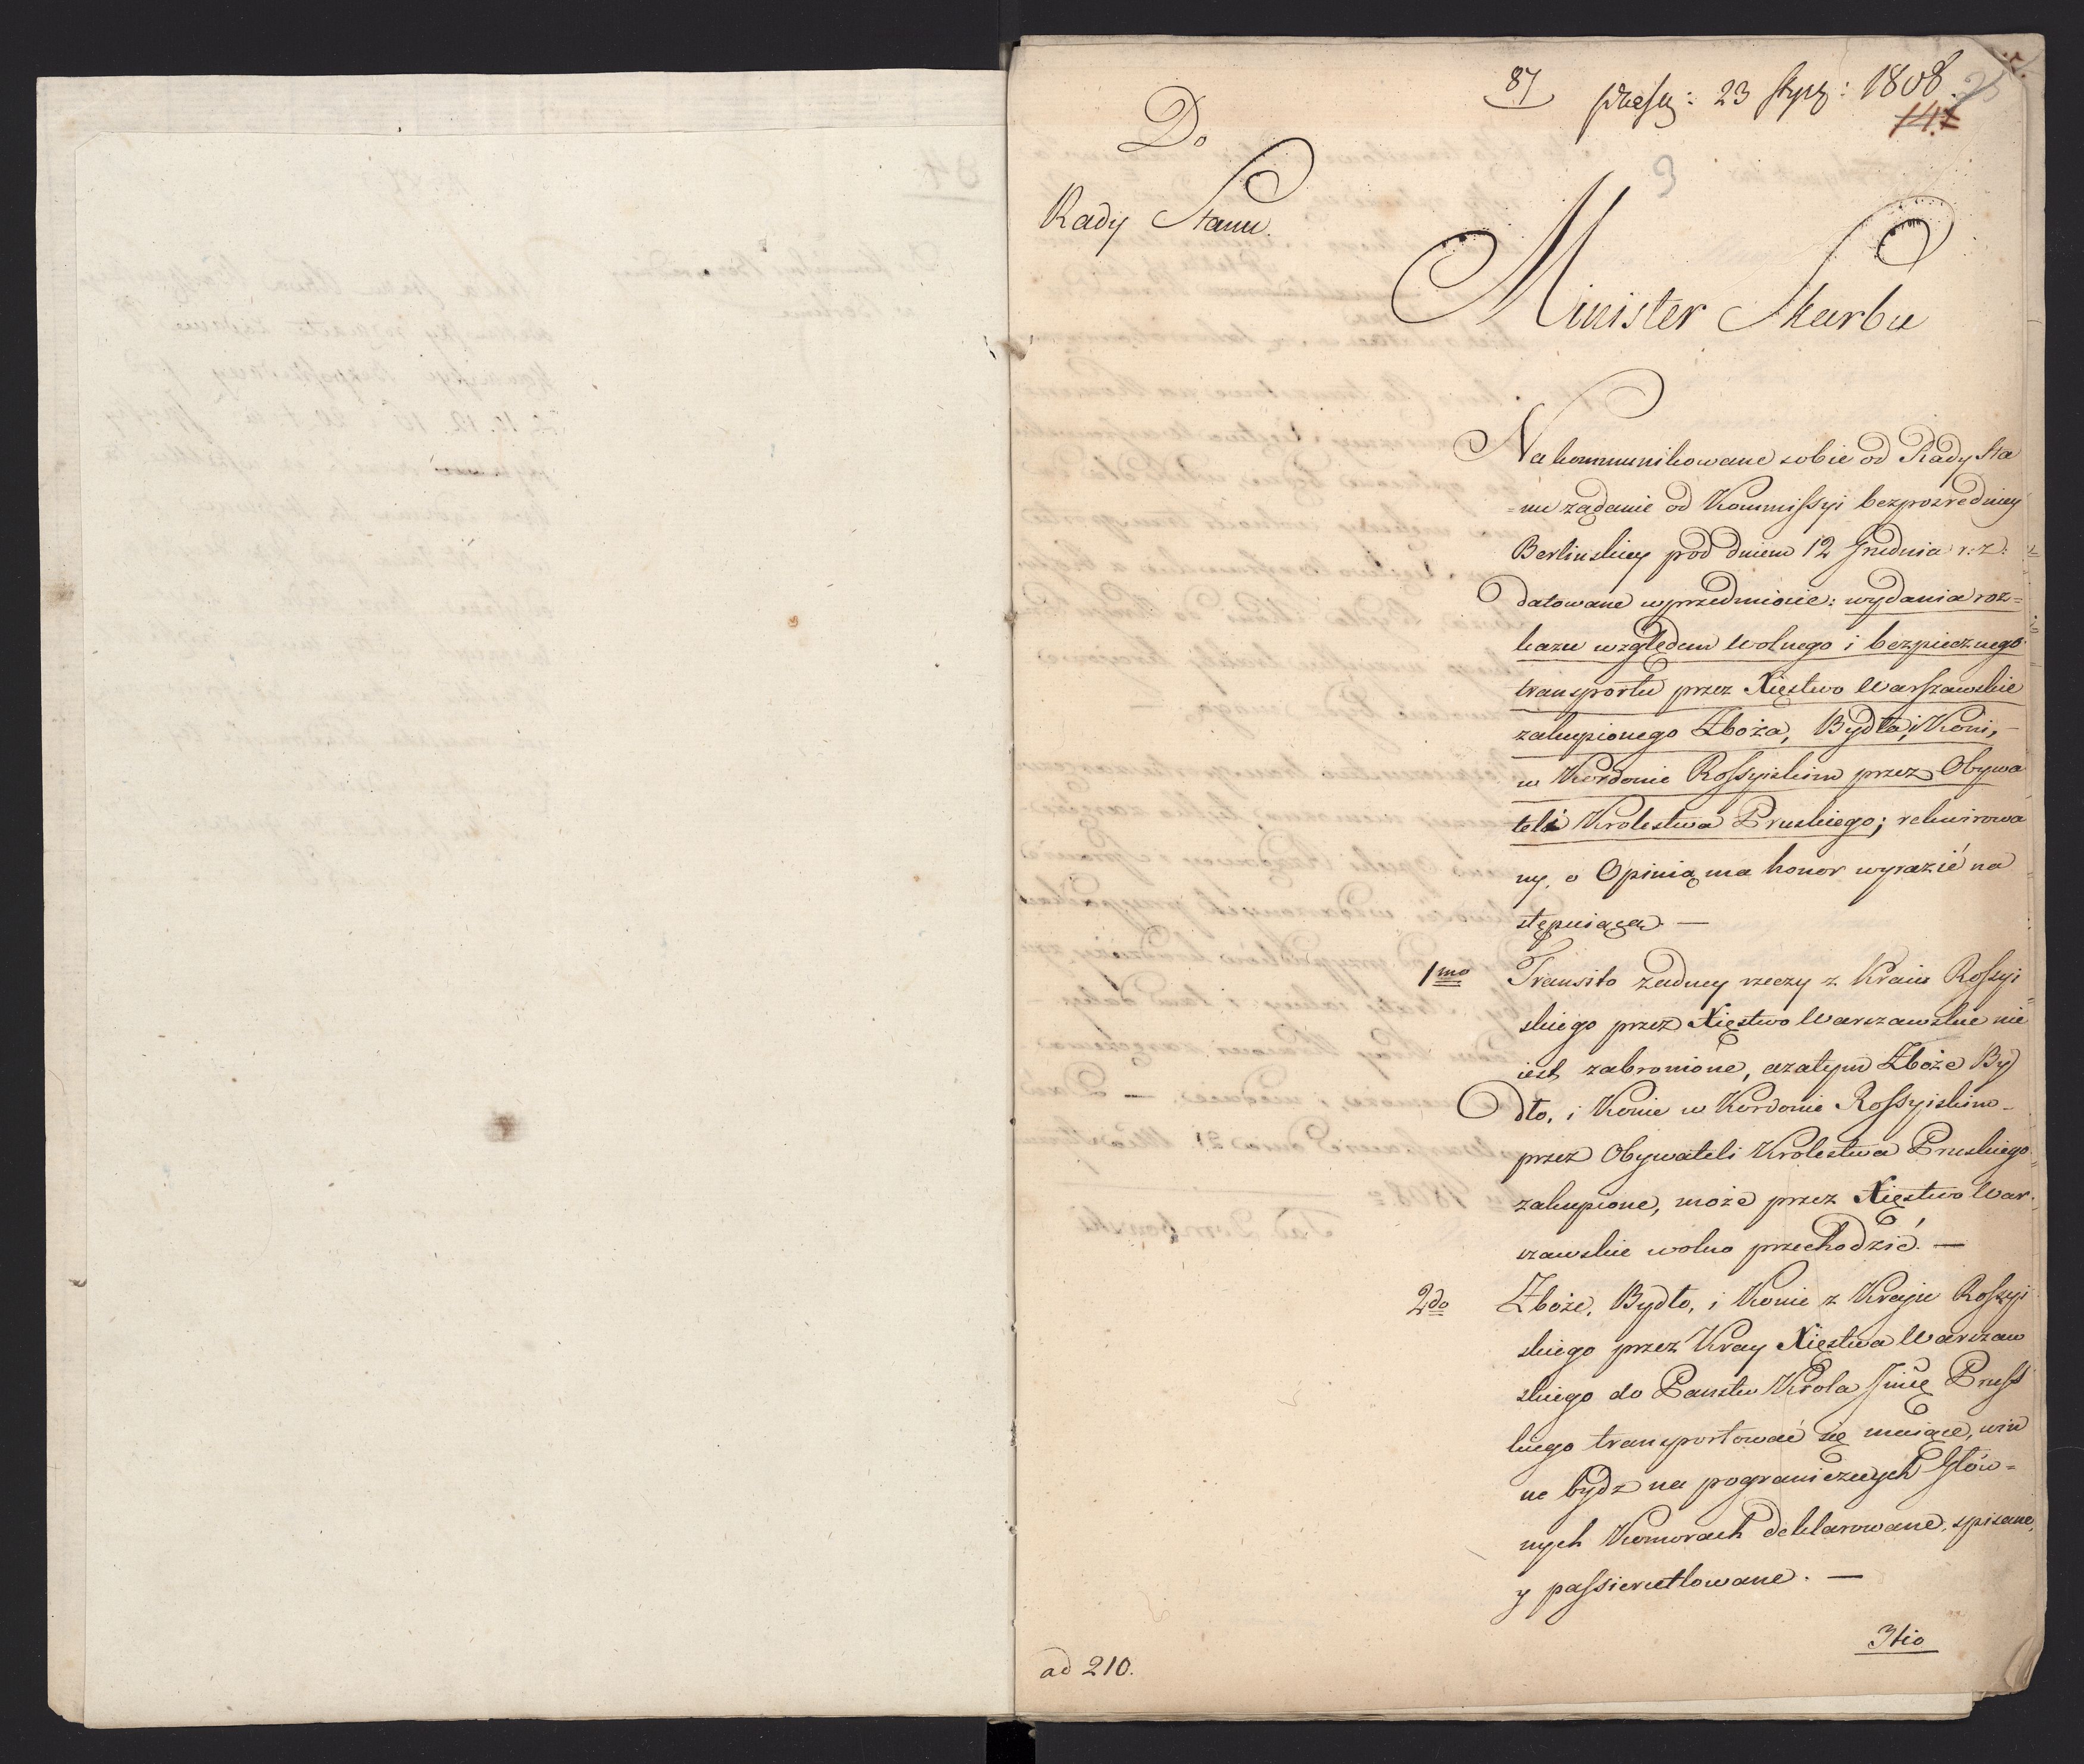 87 prasen: 23 Stycz: 1808.
141
9
Do
Rady Stanu.
Minister Skarbu
Na kommunikowane sobie od Rady Sta
=nu żądanie od Kommissyi bezpozredniey
Berlinskiey pod dniem 12 Grudnia r: z:
datowane w przedmiocie: wydania roz=
kazu względem wolnego i bezpiecznego
transportu przez Xięstwo Warszawskie
zakupionego Zboża, Bydła, i Koni,
w Kordonie Rossyiskim przez Obywa
teli Krolestwa Pruskiego; rekwirowa
ny, o Opinią ma honor wyrazić na
stępuiącą. —
1mo Transito żadney rzeczy z Kraiu Rossyi
skiego przez Xięstwo Warszawskie nie
iest zabronione, a zatym Zboże By
dło, i Konie w Kordonie Rossyiskim
przez Obywateli Krolestwa Pruskiego
zakupione, może przez Xięstwo War
szawskie wolno przechodzić. —
2do Zboże, Bydło, i Konie z Kraju Rossyi
skiego przez Kray Xięstwa Warszaw
skiego do Panstw Krola Jmći Prus
kiego transportować się maiące, win
ne bydz na pogranicznych Głów=
nych Komorach deklarowane, spisane,
y passierzetlowane. —
3tio
ad 210.